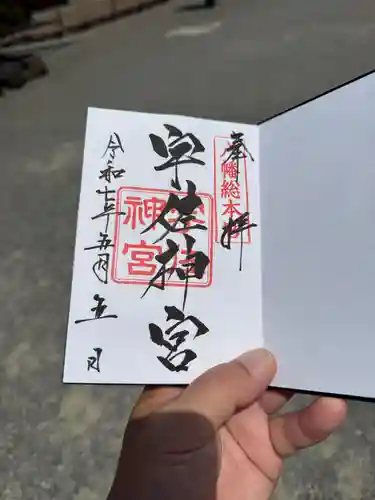 奉拝
八幡総本宮
宇佐神宮
宇佐神宮
令和七年五月五日